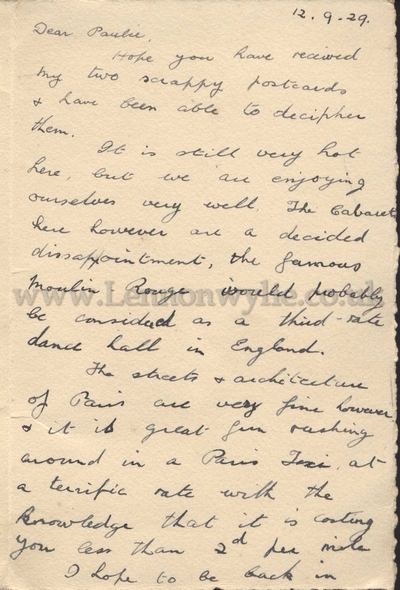 12.9.29.
Dear Paulie,
Hope you have recieved
my two scrappy postcards
& have been able to decipher
them.
It is still very hot
here, but we are enjoying
ourselves very well. The Cabaret
here however are a decided
dissappointment, the famous
Moulin Rouge would probably
be considered as a third-rate
dance hall in England.
The streets & architecture
of Paris are very fine however
& it is great fun rushing
around in a Paris Taxi, at
a terrific rate with the
knowledge that it is costing
you less than 2d per mile
I hope to be back in
www.Lennonwylie.co.uk